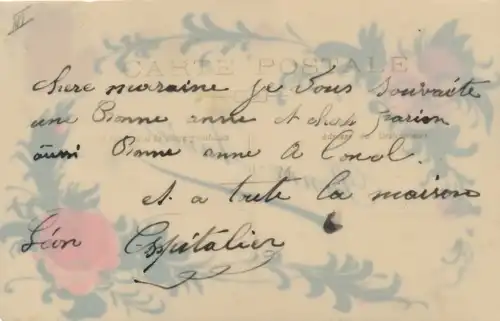 CARTE POSTALE
chere maraine je vous souvaéte
une Bonne anne et cher parion
aussi Bonne anne A
et a tute la maison
Léon Espitalier